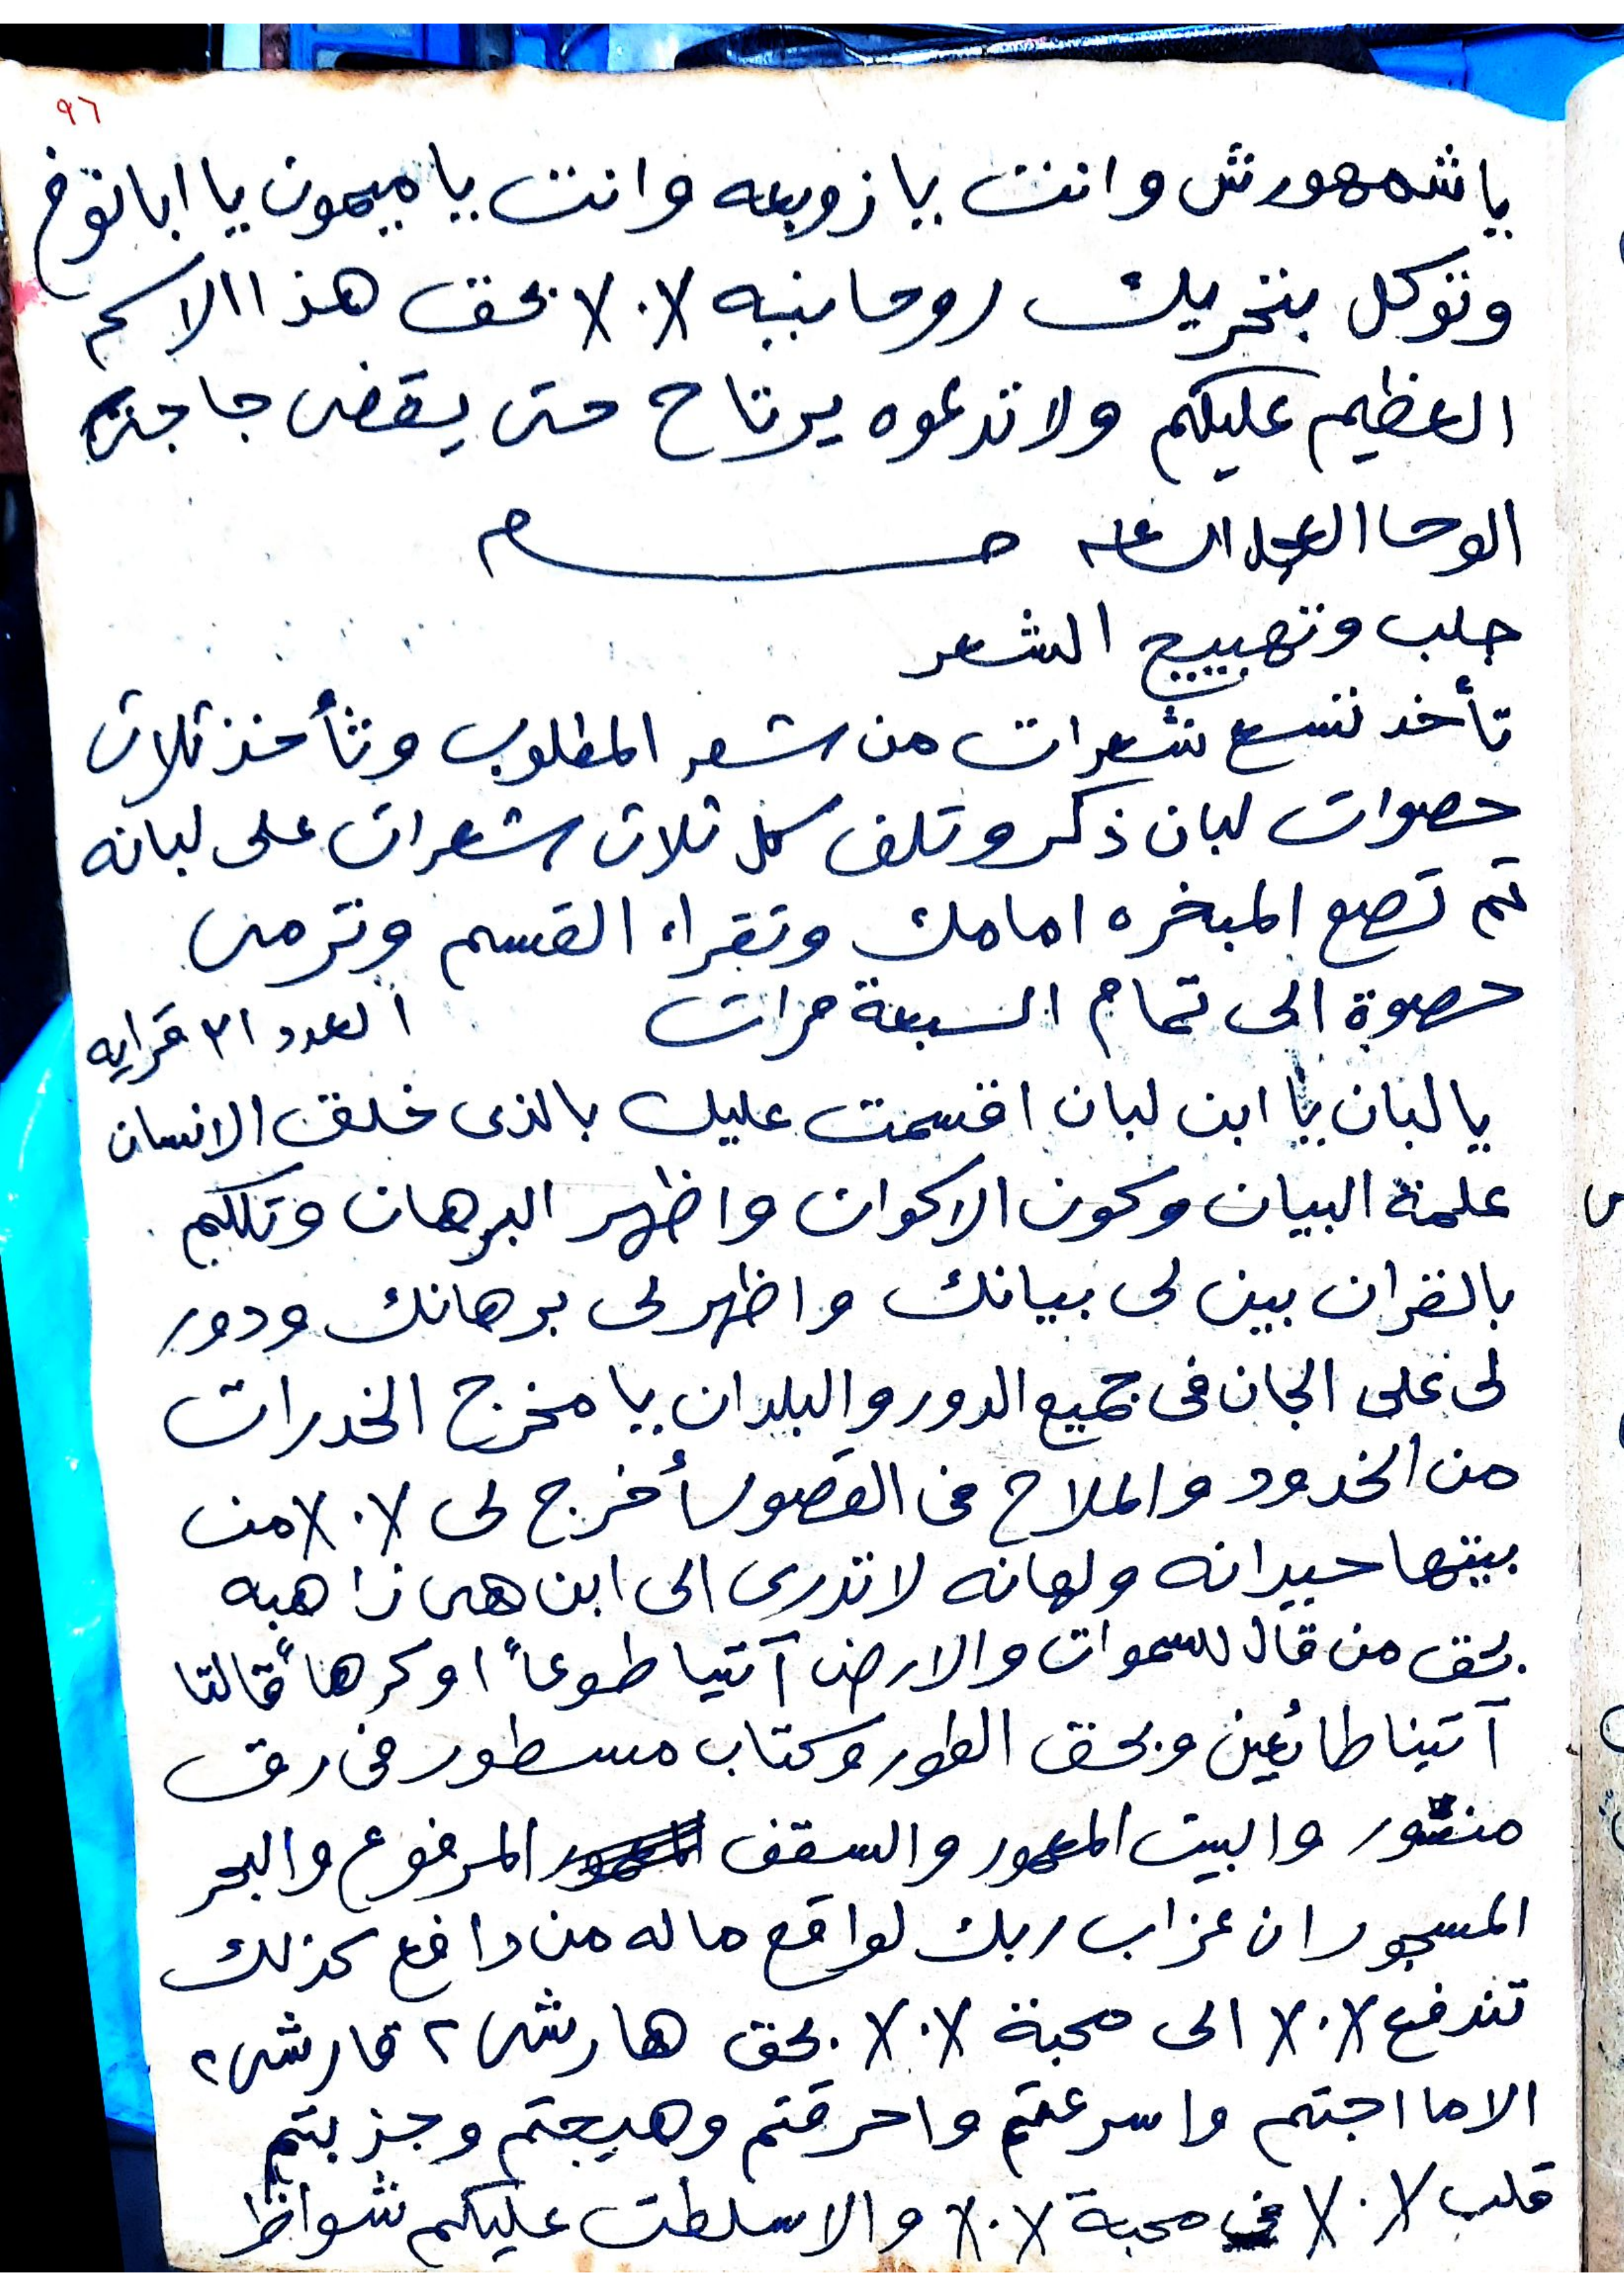 ٩٦
ياشمهورش وانت يازوبعه وانت ياميمون يا ابانوخ
وتوكل بتحريك روحانيه X.X بحق هذا الاسم
العظيم عليكم ولا تدعوه يرتاح حتى يقضى حاجته
الوحا العجل الساعه
جلب وتهييج الشعر
تأخد تسع شعرات من شعر المطلوب وتأخذ ثلاث
حصوات لبان ذكر وتلف كل ثلاث شعرات على لبانه
تم تضع المبخره امامك وتقراء القسم وترمى
حصوة الى تمام السبعة مرات العدد ٢١ قرايه
يالبان يا ابن لبان اقسمت عليك بالذى خلق الانسان
علمة البيان وكون الاكوان واظهر البرهان وتكلم
بالقران بين لى بيانك واظهر لى برهانك ودور
لى على الجان فى جميع الدور والبلدان يا مخرج الخدرات
من الخدود والملاح فى القصور أخرج لى X.X من
بيتها حيرانه ولهانه لا تدرى الى اين هى ذاهبه
بحق من قال للسموات والارض آتيا طوعاً او كرهاً قالتا
آتينا طائعين وبحق الطور وكتاب مسطور فى رق
منشور والبيت المعمور والسقف المرفوع والبحر
المسجور ان عزاب ربك لواقع ماله من دافع كذلك
تندفع X.X الى محبة X.X بحق هارش ٢ قارش ٢
الاما اجتم واسرعتم واحرقتم وهيجتم وجذبتم
قلب X.X فى محبة X.X والا سلطت عليكم شواظ